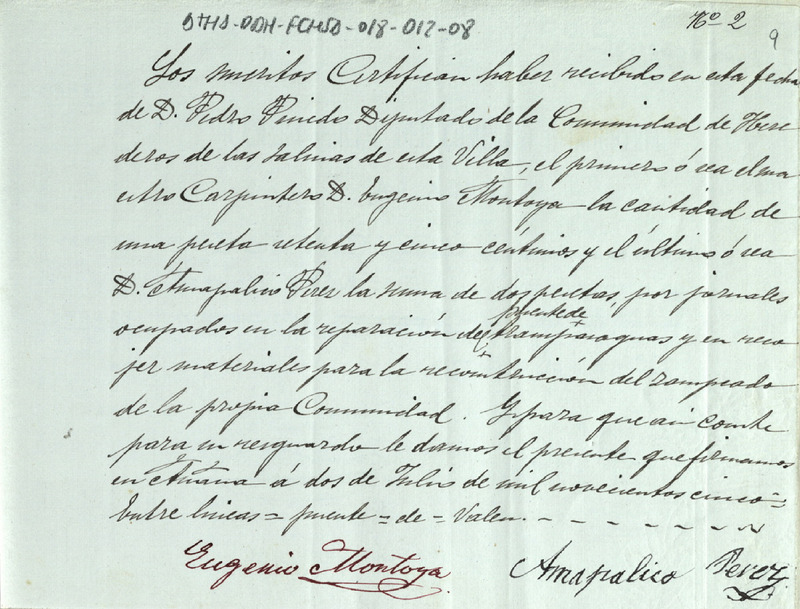 ATHA-DDH-FCHSA-018-012-08
Nº 2
9
Los suscritos Certifican haber recibido en esta fecha
de D. Pedro Pinedo Diputado de la Comunidad de Here
deros de las Salinas de esta Villa, el primero ó sea el ma
estro Carpintero D. Eugenio Montoya la cantidad de
una peseta setenta y cinco céntimos y el último ó sea
D. Amapalico Perez la suma de dos pesetas, por jornales
puente de
ocupados en la reparación del trampasaguas y en reco
jer materiales para la recontrucción del zampeado
de la propia Comunidad. Y para que asi conste
para su resguardo le damos el presente que firmamos
en Añana á dos de Julio de mil novecientos cinco=
Entre lineas = puente = de = Valen.
Eugenio Montoya
Amapalico Perez